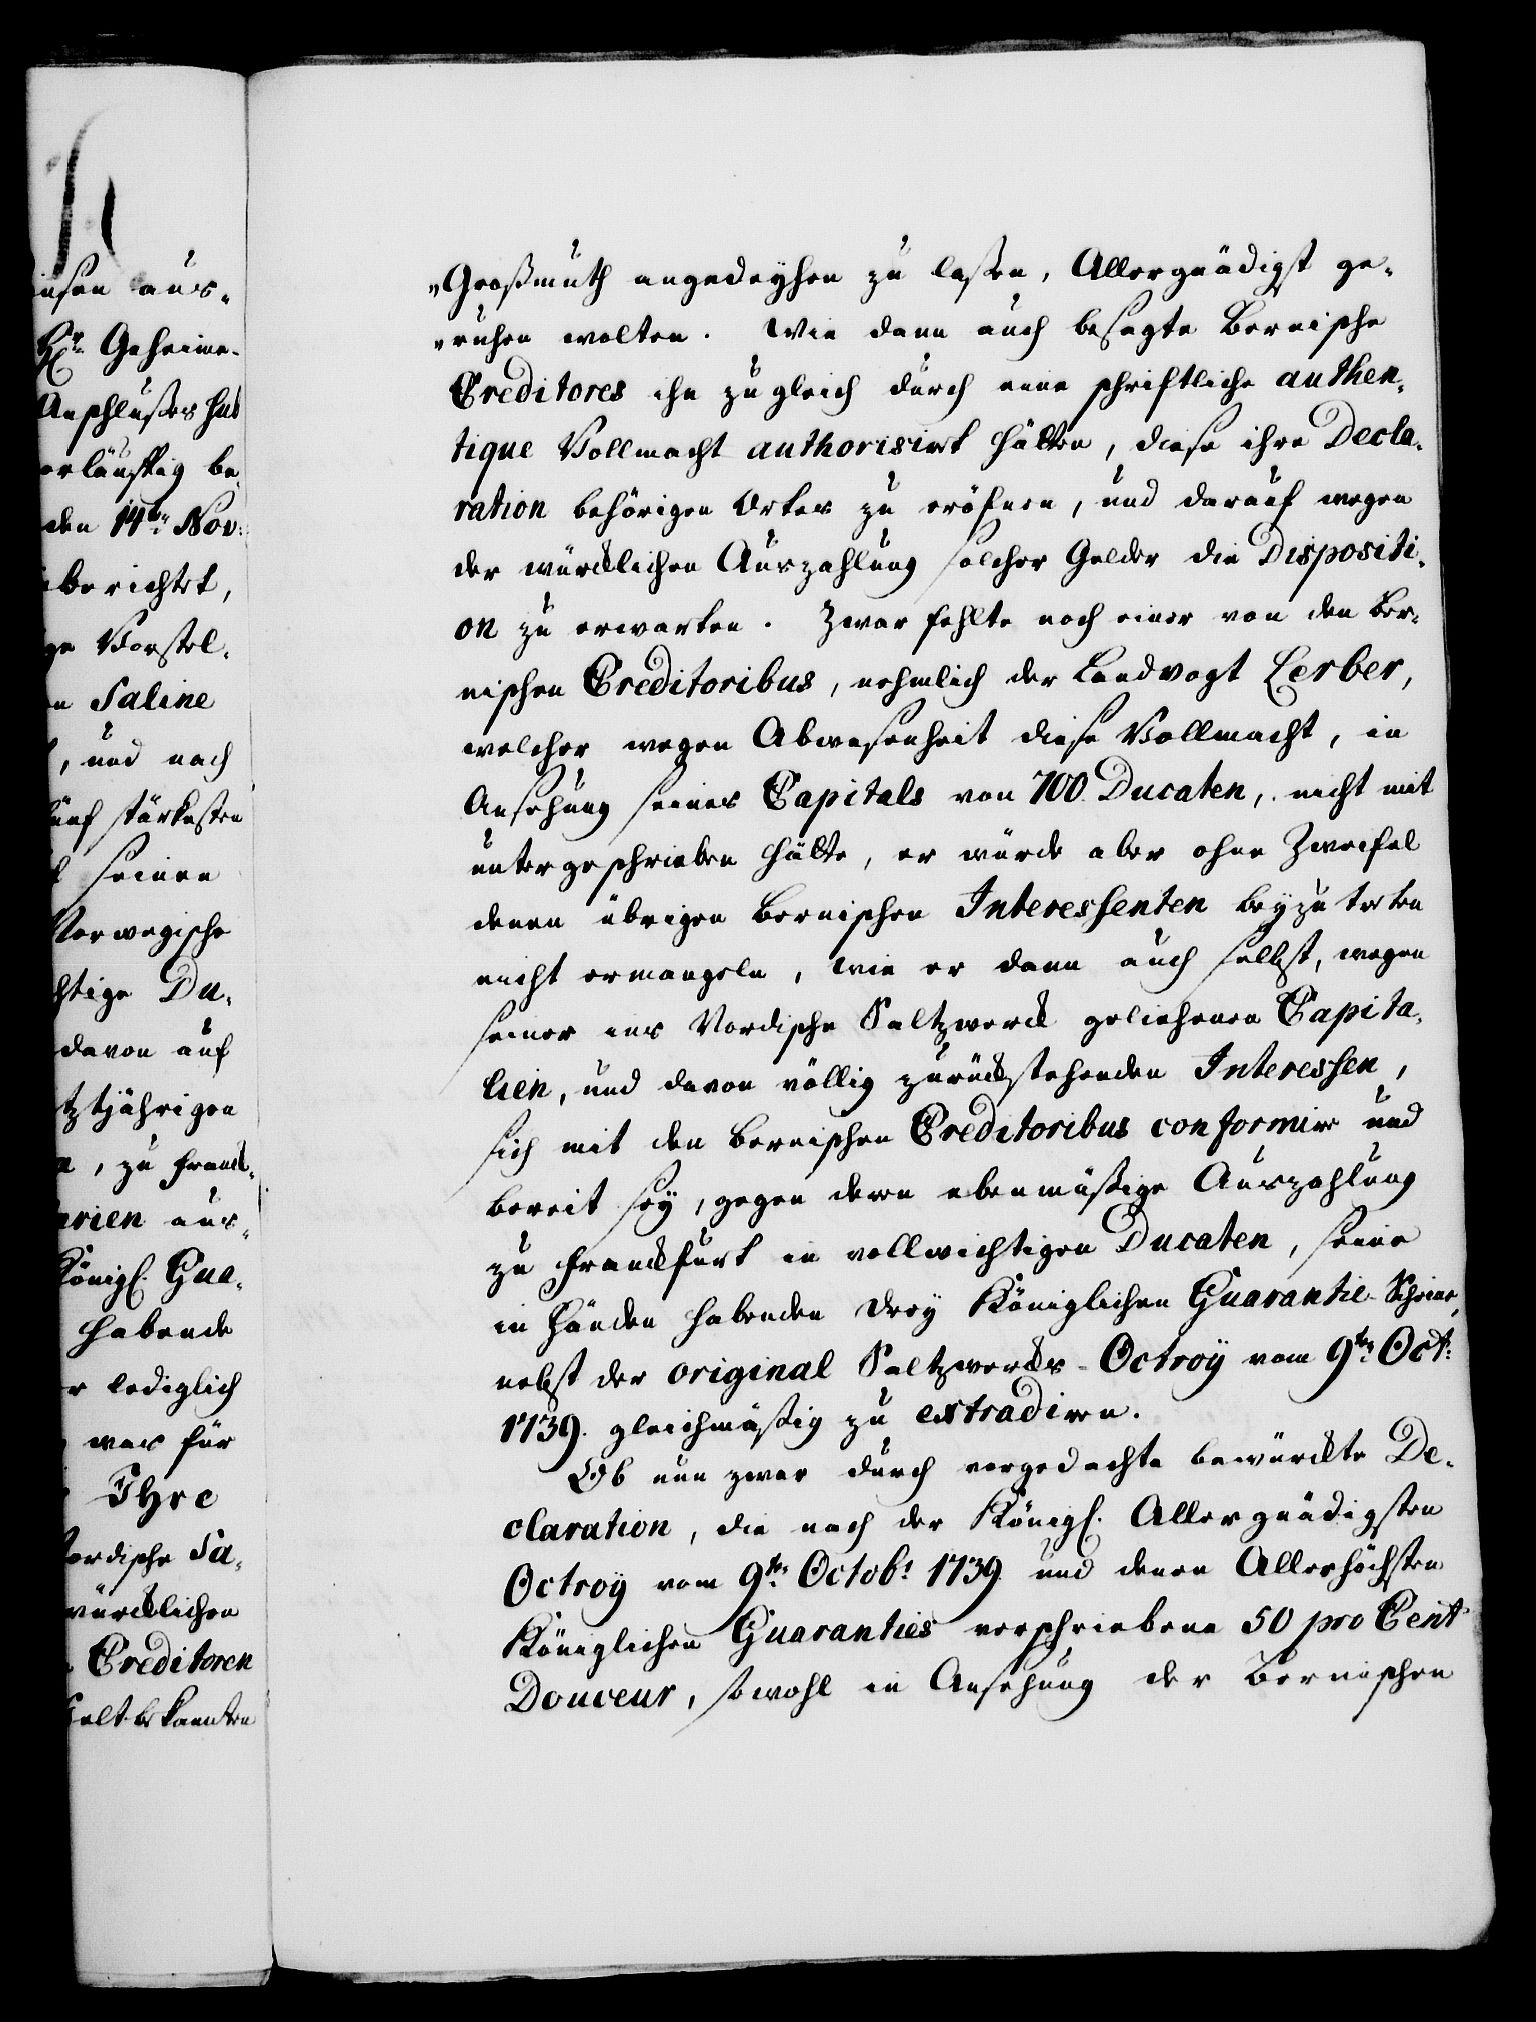 insen aus-
H.r Geheime-
Anschlußes hat
erläuffig be-
den 14ten Nov:
berichtet,
ge Vorstel-
n Saline
, und nach
fünf stärkesten
seinen
Norwegische
chtige Du-
davon auf
tztjährigen
, zu Franck-
arien aus-
Königl. Gua-
habende
r lediglich
was für
Ihre
ordische Sa-
würcklichen
Creditoren
Gelt bekannten
„Großmuth angedeyhen zu laßen, Allergnädigst ge-
„ruhen wolten. Wie dann auch besagte Bernische
Creditores ihn zugleich durch eine schriftliche authen-
tique Vollmacht authorisirt hätten, diese ihre Decla-
ration behörigen Ortes zu eröfnen, und darauf wegen
der würcklichen Auszahlung solcher Gelder die Dispositi-
on zu erwarten. Zwar fehlte noch einer von den Ber-
nischen Creditoribus, nehmlich der Landvogt Lerber,
welcher wegen Abwesenheit diese Vollmacht, in
Ansehung seines Capitals von 700 Ducaten, nicht mit
untergeschrieben hätte, er würde aber ohne Zweifel
denen übrigen Bernischen Interessenten beyzutreten
nicht ermangeln, wie er dann auch selbst, wegen
seiner ins Nordische Saltzwerck geliehenen Capita-
lien, und davon völlig zurückstehenden Interessen,
sich mit den Bernischen Creditoribus conformire und
bereit sey, gegen deren ebenmäßige Auszahlung
zu Franckfurt in vollwichtigen Ducaten, seine
in Händen habenden drey Königlichen Guarantie-Scheine,
nebst der original Saltzwercks-Octroÿ vom 9ten Oct:
1739. gleichmäßig zu extradiren.
Ob nun zwar durch vorgedachte bewürckte De-
claration, die nach der Königl. Allergnädigsten
Octroÿ vom 9ten Octobr 1739 und denen Allerhöchsten
Königlichen Guaranties verschriebene 50 pro Cent
Douceur, sowohl in Ansehung der Bernischen